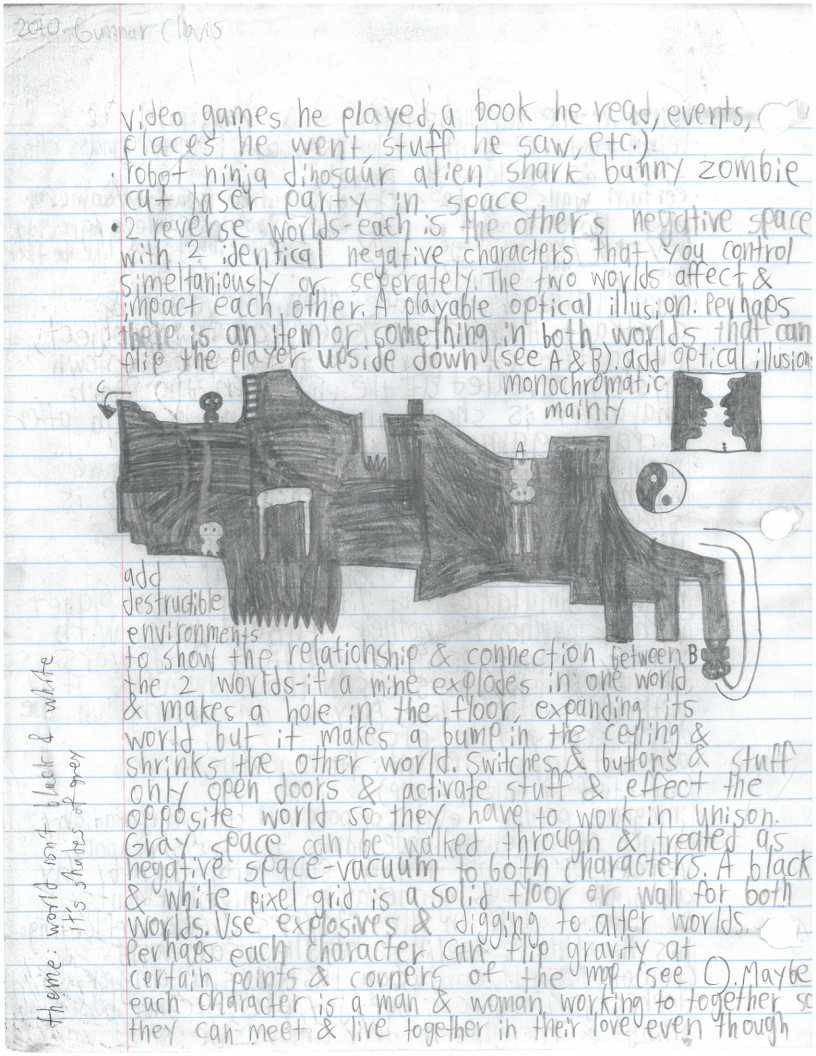 2010 Gunnar Clovis
video games he played, a book he read, events,
places he went, stuff he saw, etc.)
• robot ninja dinosaur alien shark bunny zombie
cat laser party in space
• 2 reverse worlds-each is the others negative space
with 2 identical negative characters that you control
simeltaniously or seperately. The two worlds affect &
impact each other. A playable optical illusion. Perhaps
there is an item or something in both worlds that can
flip the player upside down (see A & B). add optical illusion
monochromatic
mainly
C
A
add
destructible
environments
to show the relationship & connection between B
the 2 worlds-if a mine explodes in one world
& makes a hole in the floor, expanding its
world but it makes a bump in the ceiling &
shrinks the other world. Switches & buttons & stuff
only open doors & activate stuff & effect the
opposite world so they have to work in unison.
Gray space can be walked through & treated as
negative space-vacuum to both characters. A black
& white pixel grid is a solid floor or wall for both
worlds. Use explosives & digging to alter worlds.
Perhaps each character can flip gravity at
certain points & corners of the map (see C). Maybe
each character is a man & woman working to together so
they can meet & live together in their love even though
theme: world isn't black & white
it's shades of grey